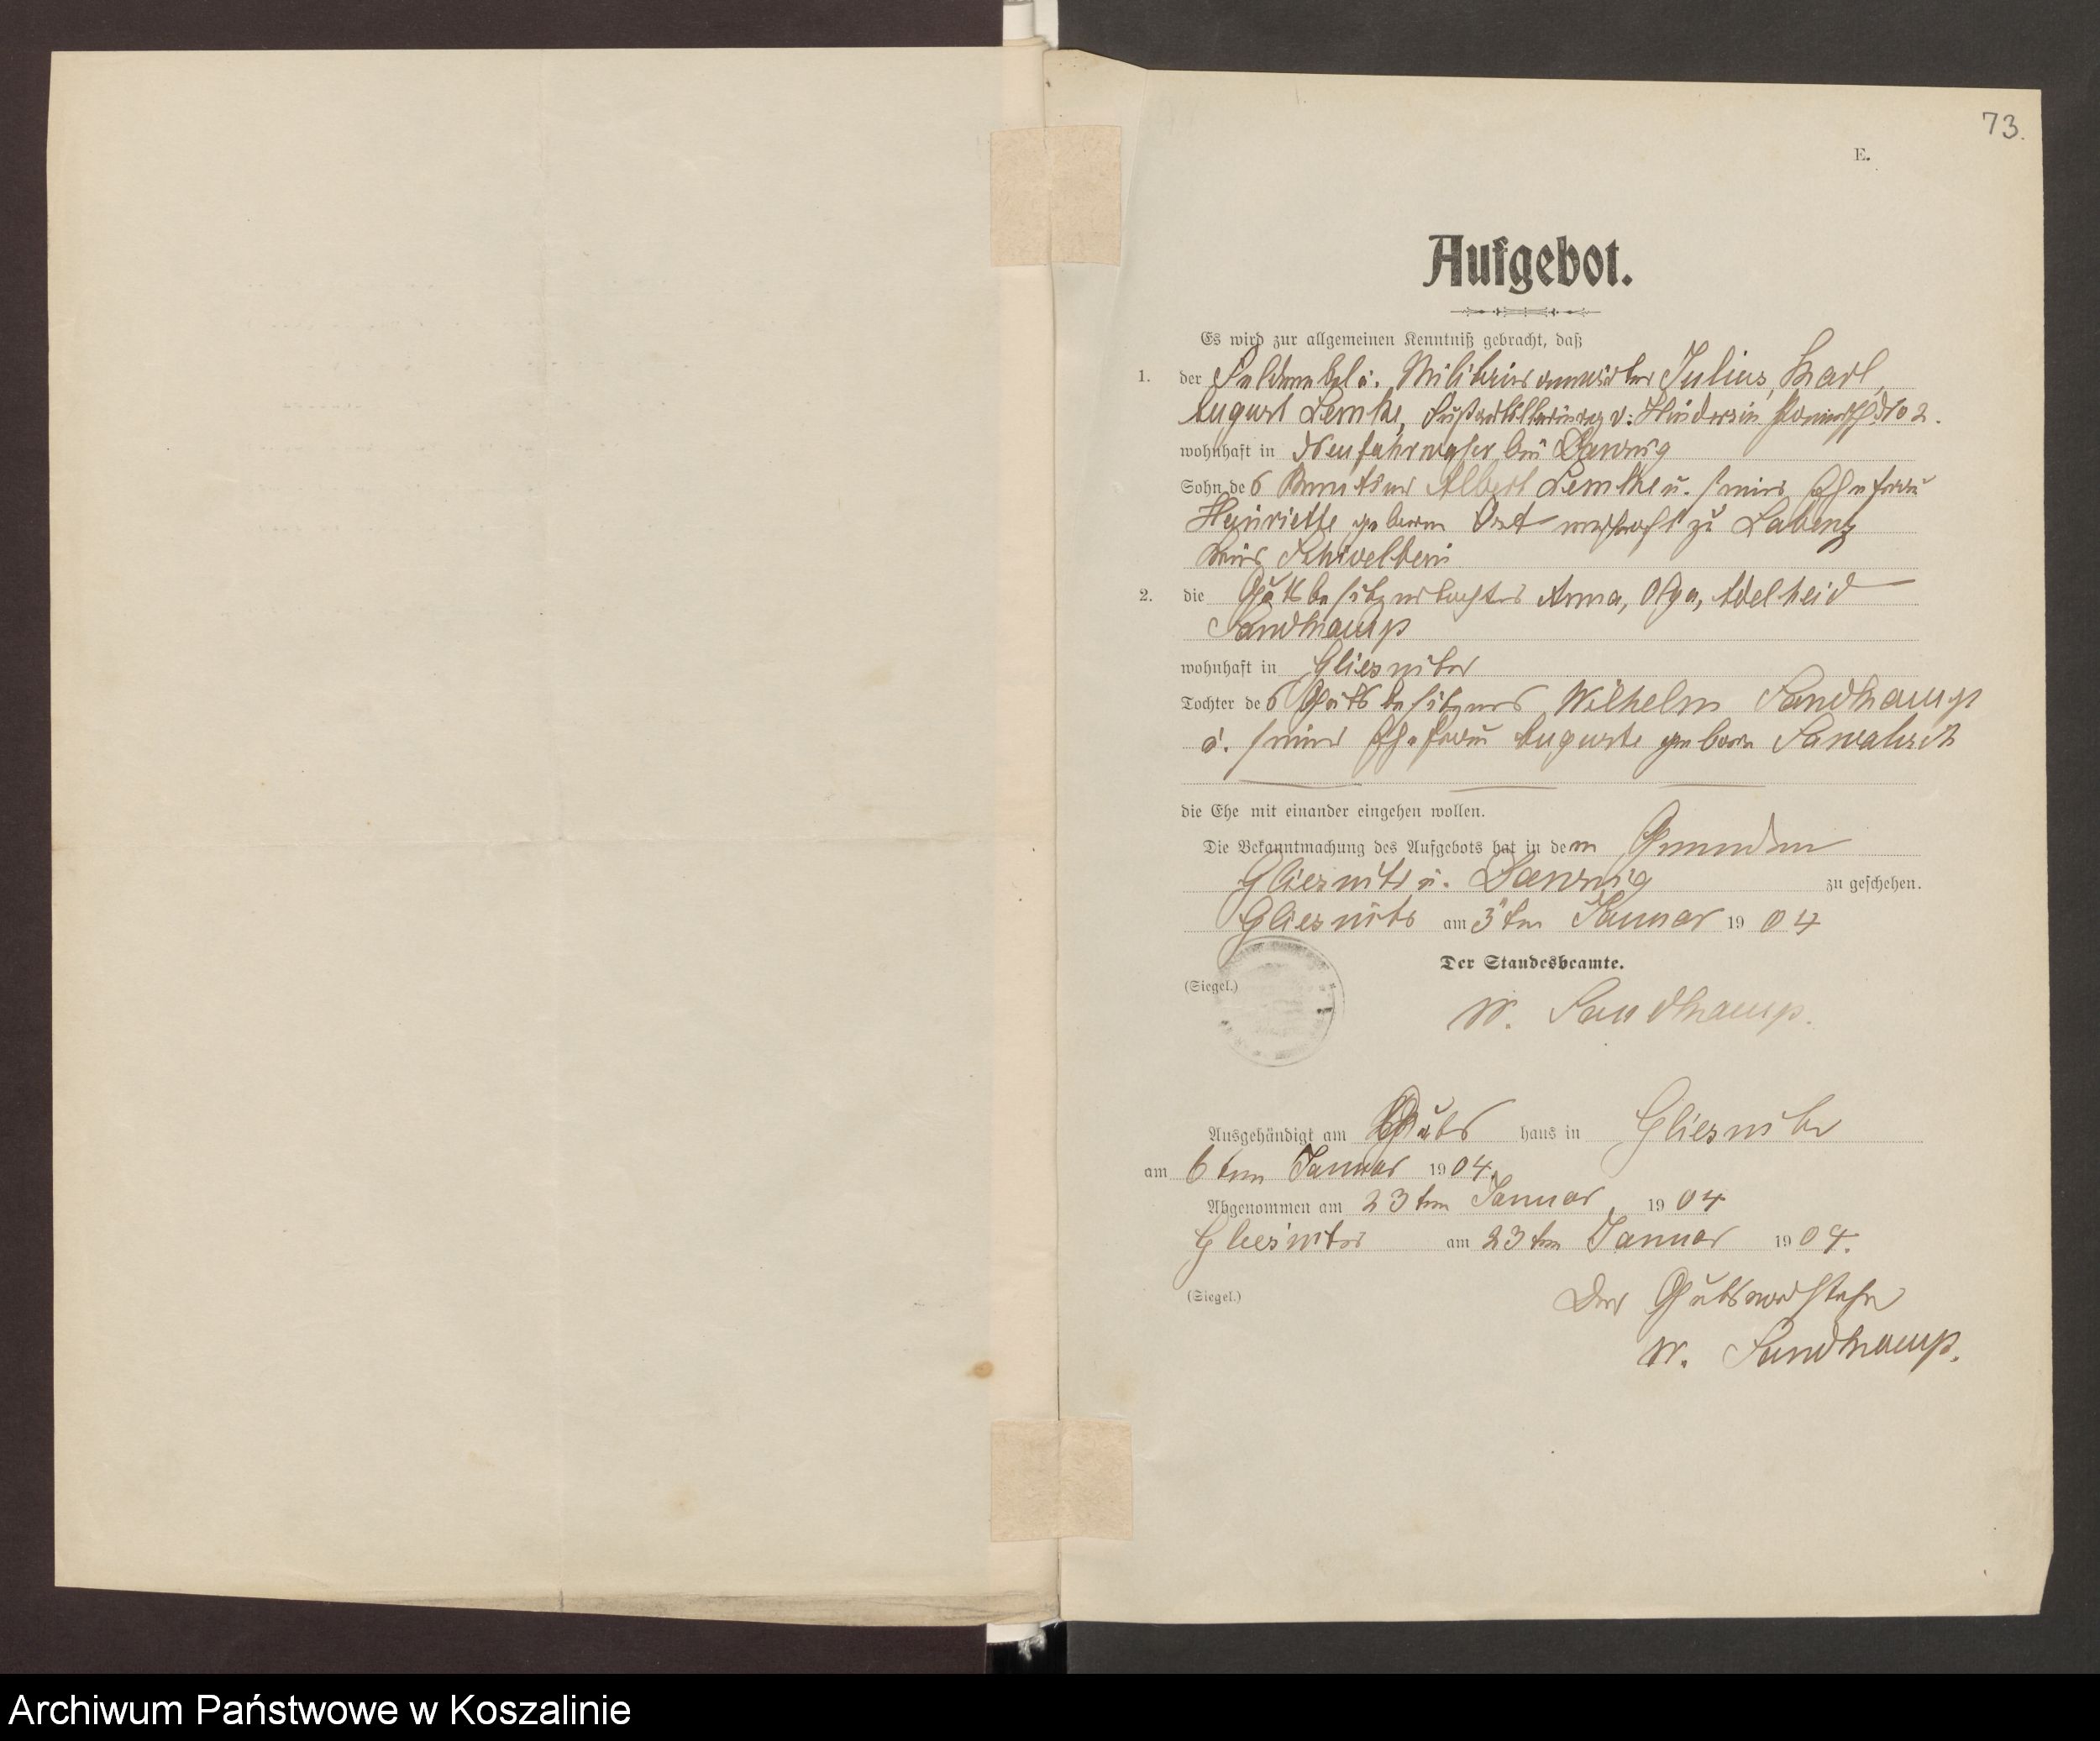 73.
E.
Aufgebot.
Es wird zur allgemeinen Kenntniß gebracht, daß
1. der Feldwebel u. Militäranwärter Julius, Karl,
August Lemke, Fußartillerie reg v: Hindersin Pomm No 2.
wohnhaft in Neufahrwaßer bei Danzig
Sohn des Rentier Albert Lemke u. seiner Ehefrau
Henriette geboren wohnhaft zu Labenz
Kreis Schivelbein
2. die Gutsbesitzertochter Anna, Olga, Adelheid
Sandkamp
wohnhaft in Gliesnitz
Tochter des Gutsbesitzers Wilhelm Sandkamp
u. seiner Ehefrau Auguste geboren
die Ehe mit einander eingehen wollen.
Die Bekanntmachung des Aufgebots hat in den Gemeinden
Gliesnitz u. Danzig zu geschehen.
Gliesnitz am 3ten Januar 1904
Der Standesbeamte.
(Siegel.)
W. Sandkamp.
Ausgehändigt am Guts haus in Gliesnitz
am 6ten Januar 1904.
Abgenommen am 23ten Januar 1904
Gliesnitz am 23ten Januar 1904.
(Siegel.)
Der Gutsvorsteher
W. Sandkamp.
Archiwum Państwowe w Koszalinie